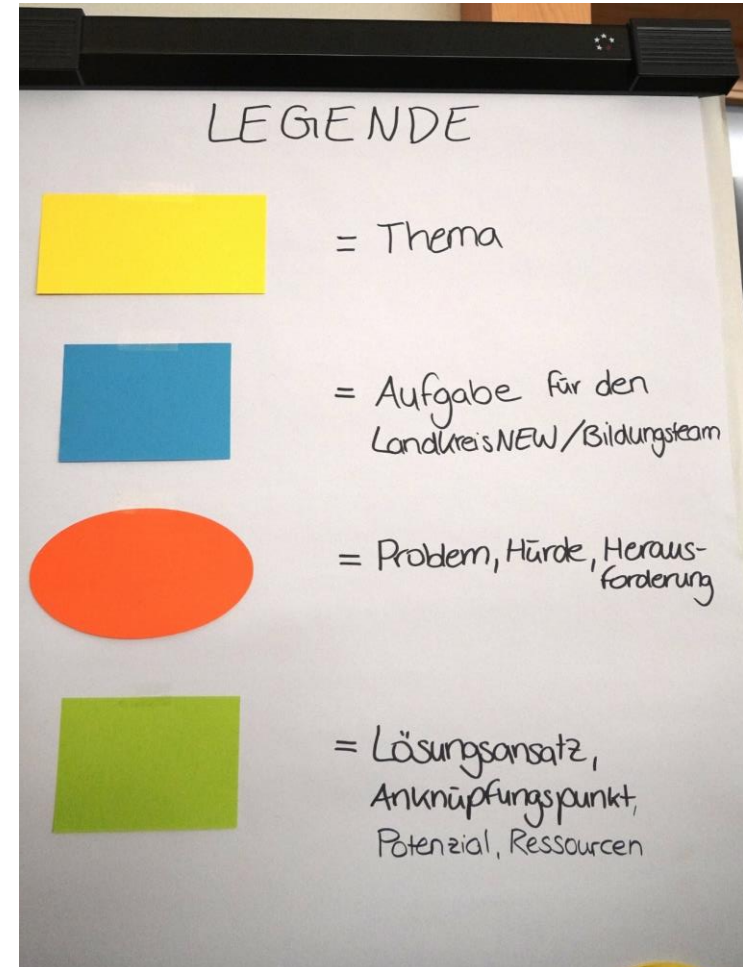 LEGENDE
= Thema
= Aufgabe für den
Landkreis NEW/Bildungsteam
= Problem, Hürde, Heraus-
forderung
= Lösungsansatz,
Anknüpfungspunkt,
Potenzial, Ressourcen